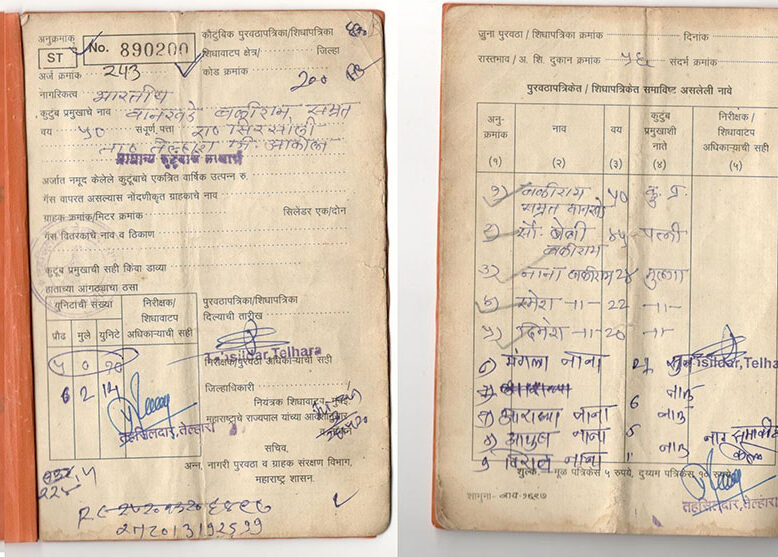 अनुक्रमांक
ST
No. 890200
कौटुंबिक पुरवठापत्रिका/शिधापत्रिका
शिधावाटप क्षेत्र/ जिल्हा
अर्ज क्रमांक 243
कोड क्रमांक
200
नागरिकत्व भारतीय
कुटुंब प्रमुखाचे नाव वानखडे बळीराम सम्रत
वय ५० संपूर्ण पत्ता रा० सिरसोली
ता० तेल्हारा जि. आकोला
अर्जात नमूद केलेले कुटूंबाचे एकत्रित वार्षिक उत्पन्न रु.
गॅस वापरत असल्यास नोंदणीकृत ग्राहकाचे नाव
ग्राहक क्रमांक/मिटर क्रमांक सिलेंडर एक/दोन
गॅस वितरकाचे नाव व ठिकाण
कुटुंब प्रमुखाची सही किंवा डाव्या
हाताच्या आंगठ्याचा ठसा
युनिटांची संख्या
निरीक्षक/ शिधावाटप अधिकाऱ्याची सही
प्रौढ मुले युनिटे
पुरवठापत्रिका/शिधापत्रिका
दिल्याची तारीख
Tahsildar, Telhara
निरीक्षक/पुरवठा अधिकाऱ्याची सही
५ 0 १०
6 2 14
जिल्हाधिकारी /
नियंत्रक शिधावाटप, मुंबई
महाराष्ट्राचे राज्यपाल यांच्या आदेशानुसार
तहसिलदार, तेल्हारा
सचिव,
अन्न, नागरी पुरवठा व ग्राहक संरक्षण विभाग,
महाराष्ट्र शासन.
जुना पुरवठा / शिधापत्रिका क्रमांक दिनांक
रास्तभाव / अ. शि. दुकान क्रमांक ५६ संदर्भ क्रमांक
पुरवठापत्रिकेत / शिधापत्रिकेत समाविष्ट असलेली नावे
अनु- क्रमांक नाव वय कुटुंब प्रमुखाशी नाते निरीक्षक / शिधावाटप अधिकाऱ्याची सही
(१) (२) (३) (४) (५)
१) बळीराम सम्रत वानखडे ५० कु. प्र.
२) सौ. बेबी बळीराम ४५ पत्नी
३) नाना बळीराम २४ मुलगा
४) रमेश -॥- 22 -॥-
५) दिनेश -॥- 20 -॥-
मंगला नाना सुन
Tahsildar, Telhara
आराध्या नाना 6 नात
नाना 5 नातु
नाना 1 नातु
शुल्क :- मूळ पत्रिकेस ५ रुपये, दुय्यम पत्रिकेस १० रुपये
तहसिलदार, तेल्हारा